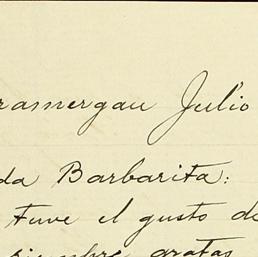 ramergau Julio
da Barbarita:
tuve el gusto de
siempre gratas